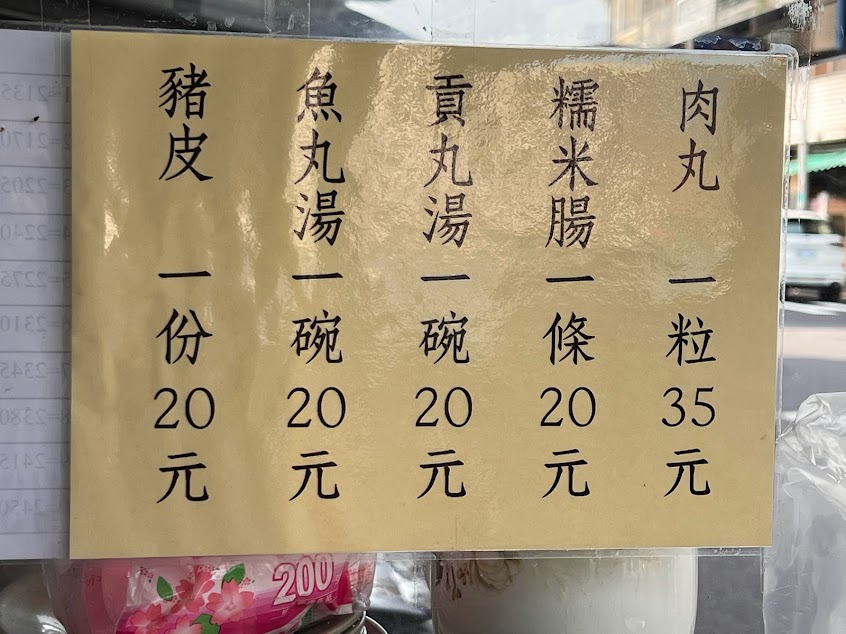 肉丸 一粒35元
糯米腸一條20元
貢丸湯一碗20元
魚丸湯一碗20元
豬皮 一份20元
200